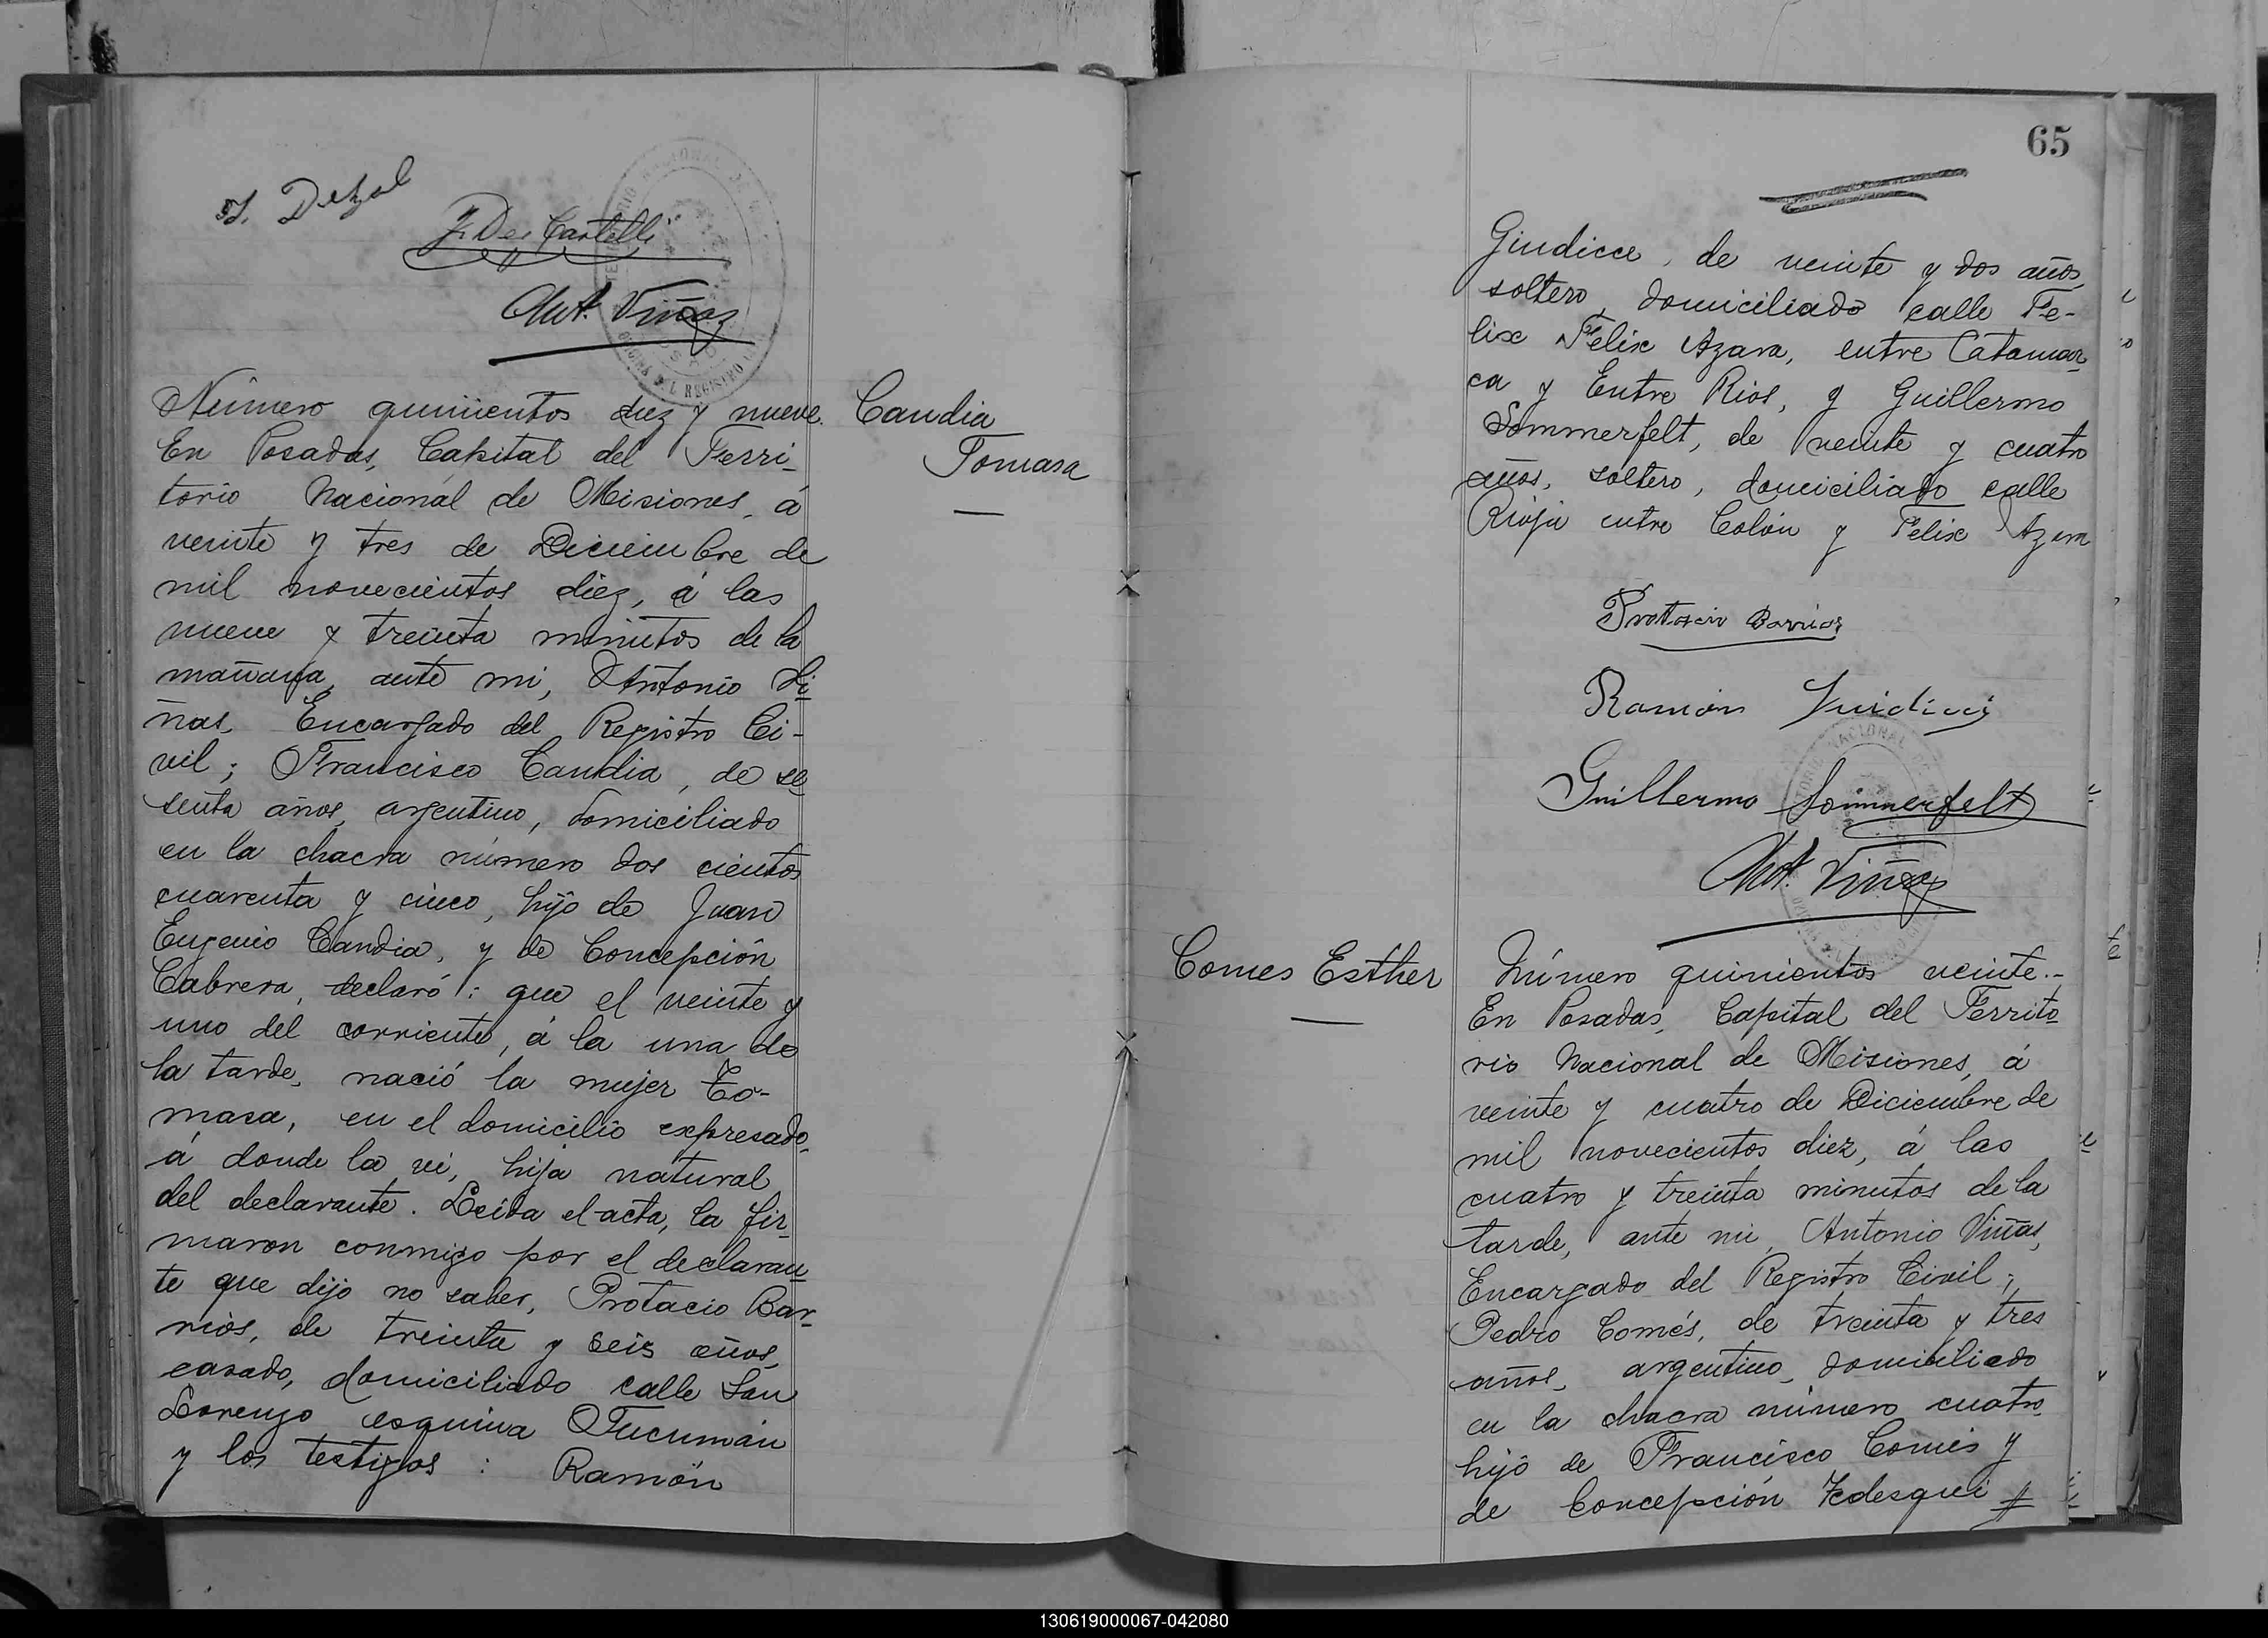 J. Dei Castelli
Ant. Viñas
Número quinientos diez y nueve.
En Posadas, Capital del Terri-
torio Nacional de Misiones, á
veinte y tres de Diciembre de
mil novecientos diez, á las
nueve y treinta minutos de la
mañana, ante mi, Antonio Vi-
ñas, Encargado del Registro Ci-
vil; Francisco Candia, de se-
senta años, argentino, domiciliado
en la chacra número dos cientos
cuarenta y cinco, hijo de Juan
Eugenio Candia, y de Concepción
Cabrera, declaró: que el veinte y
uno del corriente, á la una de
la tarde, nació la mujer To-
masa, en el domicilio expresado,
á donde la vi, hija natural
del declarante. Leida el acta, la fir-
maron conmigo por el declaran-
te que dijo no saber, Protacio Bar-
rios, de treinta y seis años,
casado, domiciliado calle San
Lorenzo esquina Tucumán
y los testigos: Ramón
Candia
Tomasa
65
Giudicce, de veinte y dos años,
soltero, domiciliado calle Fe-
lix Felix Azara, entre Catamar-
ca y Entre Rios, y Guillermo
Sommerfelt, de veinte y cuatro
años, soltero, domiciliado calle
Rioja entre Colón y Felix Azara
Protacio Barrios
Ramón Giudici
Guillermo Sommerfelt
Ant. Viñas
Comes Esther
Número quinientos veinte.-
En Posadas, Capital del Territo-
rio Nacional de Misiones, á
veinte y cuatro de Diciembre de
mil novecientos diez, á las
cuatro y treinta minutos de la
tarde, ante mi, Antonio Viñas,
Encargado del Registro Civil;
Pedro Comés, de treinta y tres
años, argentino, domiciliado
en la chacra número cuatro,
hijo de Francisco Comés y
de Concepción
130619000067-042080